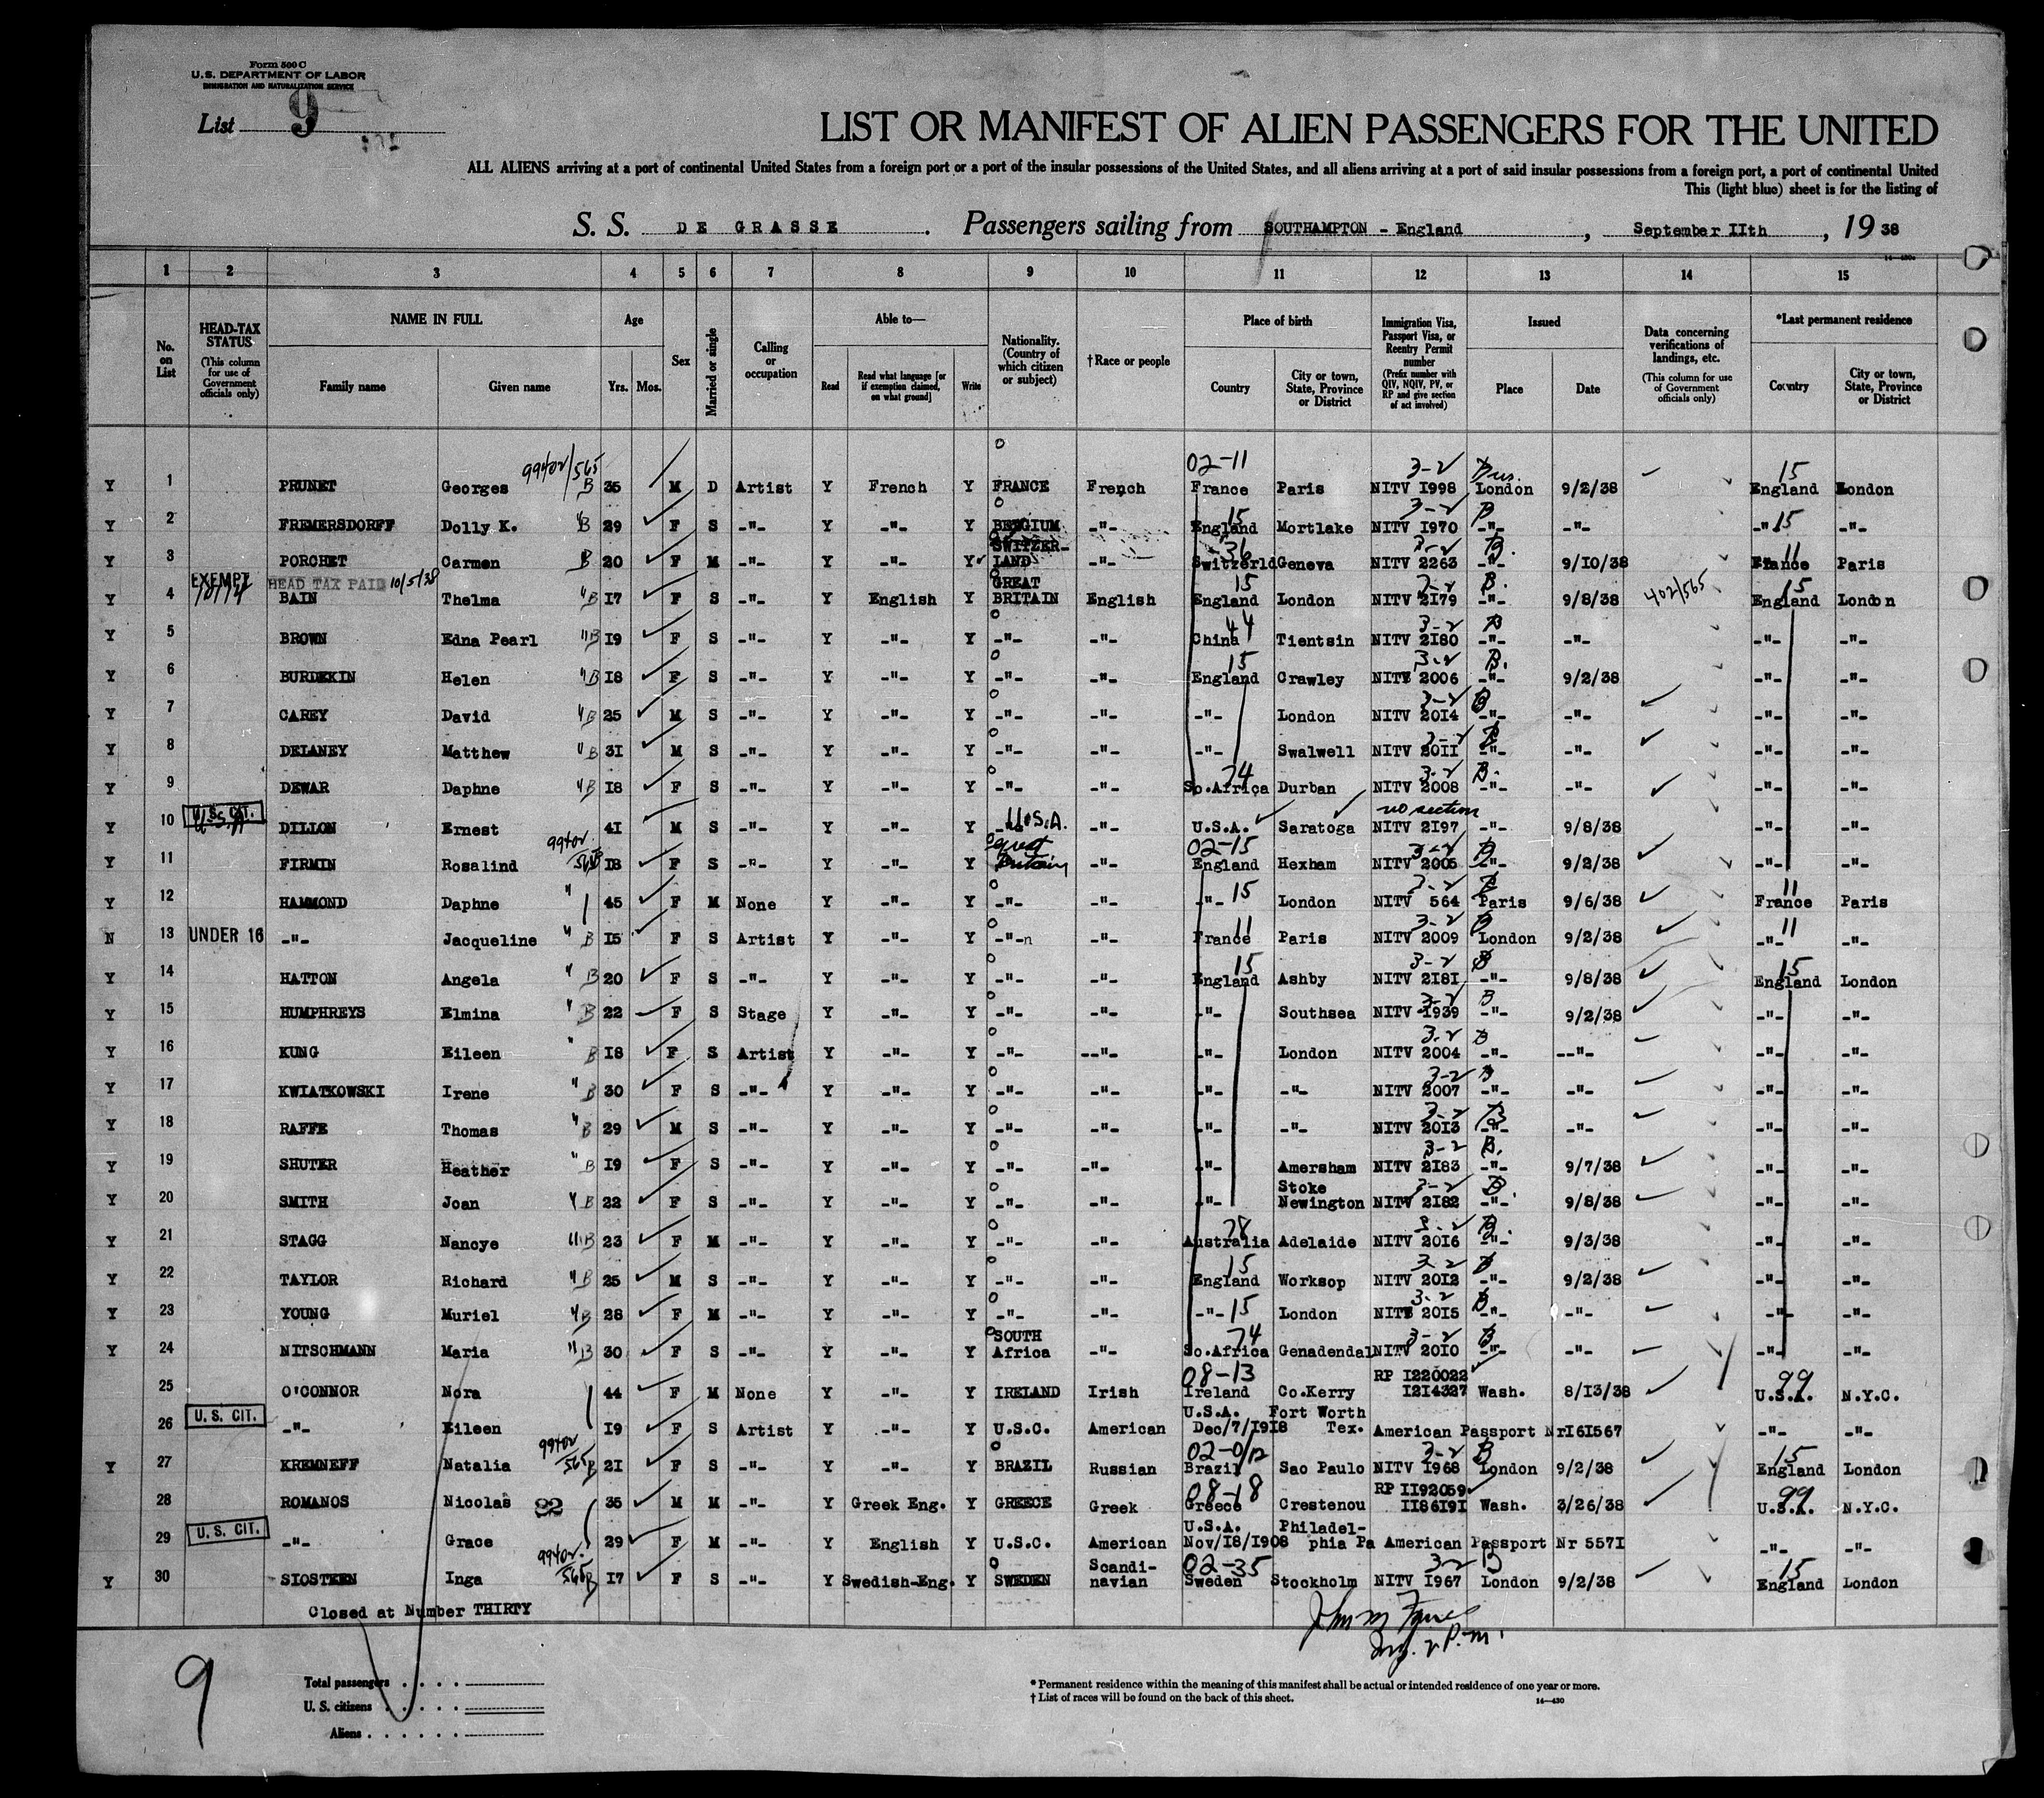 Form 500 C
U.S. DEPARTMENT OF LABOR
IMMIGRATION AND NATURALIZATION SERVICE
List 9
LIST OR MANIFEST OF ALIEN PASSENGERS FOR THE UNITED
ALL ALIENS arriving at a port of continental United States from a foreign port or a port of the insular possessions of the United States, and all aliens arriving at a port of said insular possessions from a foreign port, a port of continental United
This (light blue) sheet is for the listing of
S. S. DE GRASSE. Passengers sailing from SOUTHAMPTON - England, September IIth, 19 38
1 2 3 4 5 6 7 8 9 10 11 12 13 14 15
No. on List HEAD-TAX STATUS (This column for use of Government officials only) NAME IN FULL Family name Given name Age Yrs. Mos. Sex Married or single Calling or occupation Able to— Read Read what language [or if exemption claimed, on what ground] Write Nationality. (Country of which citizen or subject) † Race or people Place of birth Country City or town, State, Province or District Immigration Visa, Passport Visa, or Reentry Permit number (Prefix number with QIV, NQIV, PV, or RP and give section of act involved) Issued Place Date Data concerning verifications of landings, etc. (This column for use of Government officials only) *Last permanent residence Country City or town, State, Province or District
99402/565 02-11 3-2 15
Y 1 PRUNET Georges B 35 M D Artist Y French Y FRANCE French France Paris NITV I998 London 9/2/38 England London
15 3-2 B
Y 2 FREMERSDORFF Dolly K. "B 29 F S -"- Y -"- Y BELGIUM -"- England Mortlake NITV I970 -"- -"- -"- 15 -"-
36 3-2 B. 11
Y 3 PORCHET Carmen B 20 F M -"- Y -"- Y SWITZER-LAND -"- Switzerld Geneva NITV 2263 -"- 9/10/38 France Paris
EXEMPT HEAD TAX PAID 10/5/38 15 3-2 B. 402/565 15
Y 4 BAIN Thelma "B I7 F S -"- Y English Y GREAT BRITAIN English England London NITV 2I79 -"- 9/8/38 England London
44 3-2 B
Y 5 BROWN Edna Pearl "B I9 F S -"- Y -"- Y -"- -"- China Tientsin NITV 2I80 -"- -"- -"- -"-
15 3-2 B.
Y 6 BURDEKIN Helen "B I8 F S -"- Y -"- Y -"- -"- England Crawley NITV 2006 -"- 9/2/38 -"- -"-
3-2 B
Y 7 CAREY David "B 25 M S -"- Y -"- Y -"- -"- -"- London NITV 20I4 -"- -"- -"- -"-
3-2 B
Y 8 DELANEY Matthew "B 3I M S -"- Y -"- Y -"- -"- -"- Swalwell NITV 20II -"- -"- -"- -"-
74 3-2 B.
Y 9 DEWAR Daphne "B I8 F S -"- Y -"- Y -"- -"- So.Africa Durban NITV 2008 -"- -"- -"- -"-
U. S. CIT. no section
Y 10 DILLON Ernest 4I M S -"- Y -"- Y U.S.A. -"- U.S.A. Saratoga NITV 2I97 -"- 9/8/38 -"- -"-
99402/565 02-15 3-2 B
Y 11 FIRMIN Rosalind B I8 F S -"- Y -"- Y Great Britain -"- England Hexham NITV 2005 -"- 9/2/38 -"- -"-
3-2 11
Y 12 HAMMOND Daphne " 45 F M None Y -"- Y -"- -"- -"- 15 London NITV 564 Paris 9/6/38 France Paris
11 3-2 B 11
N 13 UNDER 16 -"- Jacqueline " B I5 F S Artist Y -"- Y -"-n -"- France Paris NITV 2009 London 9/2/38 -"- -"-
15 3-2 B 15
Y 14 HATTON Angela " B 20 F S -"- Y -"- Y -"- -"- England Ashby NITV 2I8I -"- 9/8/38 England London
3-2 B
Y 15 HUMPHREYS Elmina " B 22 F S Stage Y -"- Y -"- -"- -"- Southsea NITV I939 -"- 9/2/38 -"- -"-
3-2 B
Y 16 KUNG Eileen " B I8 F S Artist Y -"- Y -"- --"- -"- London NITV 2004 -"- --"- -"- -"-
3-2 B
Y 17 KWIATKOWSKI Irene " B 30 F S -"- Y -"- Y -"- -"- -"- -"- NITV 2007 -"- -"- -"- -"-
3-2 B
Y 18 RAFFE Thomas " B 29 M S -"- Y -"- Y -"- -"- -"- -"- NITV 20I3 -"- -"- -"- -"-
3-2 B.
Y 19 SHUTER Heather " B I9 F S -"- Y -"- Y -"- -"- -"- Amersham NITV 2I83 -"- 9/7/38 -"- -"-
3-2 B
Y 20 SMITH Joan " B 22 F S -"- Y -"- Y -"- -"- -"- Stoke Newington NITV 2I82 -"- 9/8/38 -"- -"-
78 3-2 B.
Y 21 STAGG Nancye "B 23 F M -"- Y -"- Y -"- -"- Australia Adelaide NITV 20I6 -"- 9/3/38 -"- -"-
15 3-2 B
Y 22 TAYLOR Richard "B 25 M S -"- Y -"- Y -"- -"- England Worksop NITV 20I2 -"- 9/2/38 -"- -"-
3-2 B
Y 23 YOUNG Muriel "B 28 F M -"- Y -"- Y -"- -"- -"- 15 London NITV 20I5 -"- -"- -"- -"-
74 3-2 B
Y 24 NITSCHMANN Maria "B 30 F S -"- Y -"- Y SOUTH Africa -"- So.Africa Genadendal NITV 20I0 -"- -"- -"- -"-
08-13 99
25 O'CONNOR Nora 44 F M None Y -"- Y IRELAND Irish Ireland Co.Kerry RP I220022 I2I4327 Wash. 8/I3/38 U.S.A. N.Y.C.
U. S. CIT.
26 -"- Eileen I9 F S Artist Y -"- Y U.S.C. American U.S.A. Dec/7/I9I8 Fort Worth Tex. American Passport NrI6I567 -"- -"-
99402/565 3-2 B 15
Y 27 KREMNEFF Natalia B 2I F S -"- Y -"- Y BRAZIL Russian Brazil Sao Paulo NITV I968 London 9/2/38 England London
08-18 99
28 ROMANOS Nicolas 35 M M -"- Y Greek Eng. Y GREECE Greek Greece Crestenou RP II92059 II86I9I Wash. 3/26/38 U.S.A. N.Y.C.
U. S. CIT.
29 -"- Grace 29 F M -"- Y English Y U.S.C. American U.S.A. Nov/I8/I908 Philadel-phia Pa American Passport Nr 557I -"- -"-
99402/565 02-35 3-2 B 15
Y 30 SIOSTEEN Inga B I7 F S -"- Y Swedish-Eng. Y SWEDEN Scandi-navian Sweden Stockholm NITV I967 London 9/2/38 England London
Closed at Number THIRTY
9
Total passengers
U. S. citizens
Aliens
* Permanent residence within the meaning of this manifest shall be actual or intended residence of one year or more.
† List of races will be found on the back of this sheet. 14—430